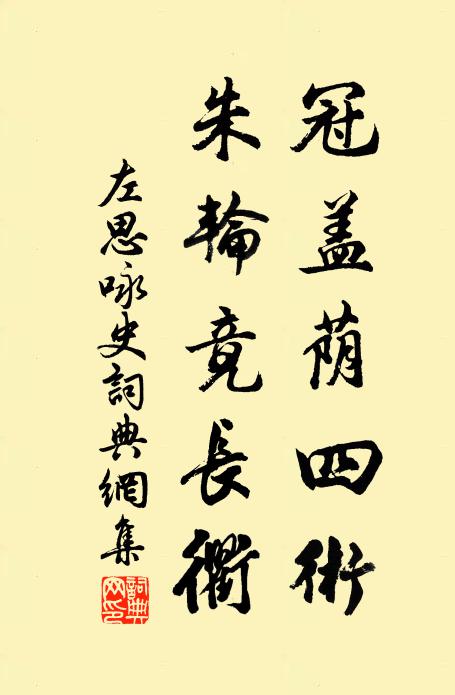 冠盖荫四術
朱輪竟長衢
左思咏史詞典網集
詞典网印